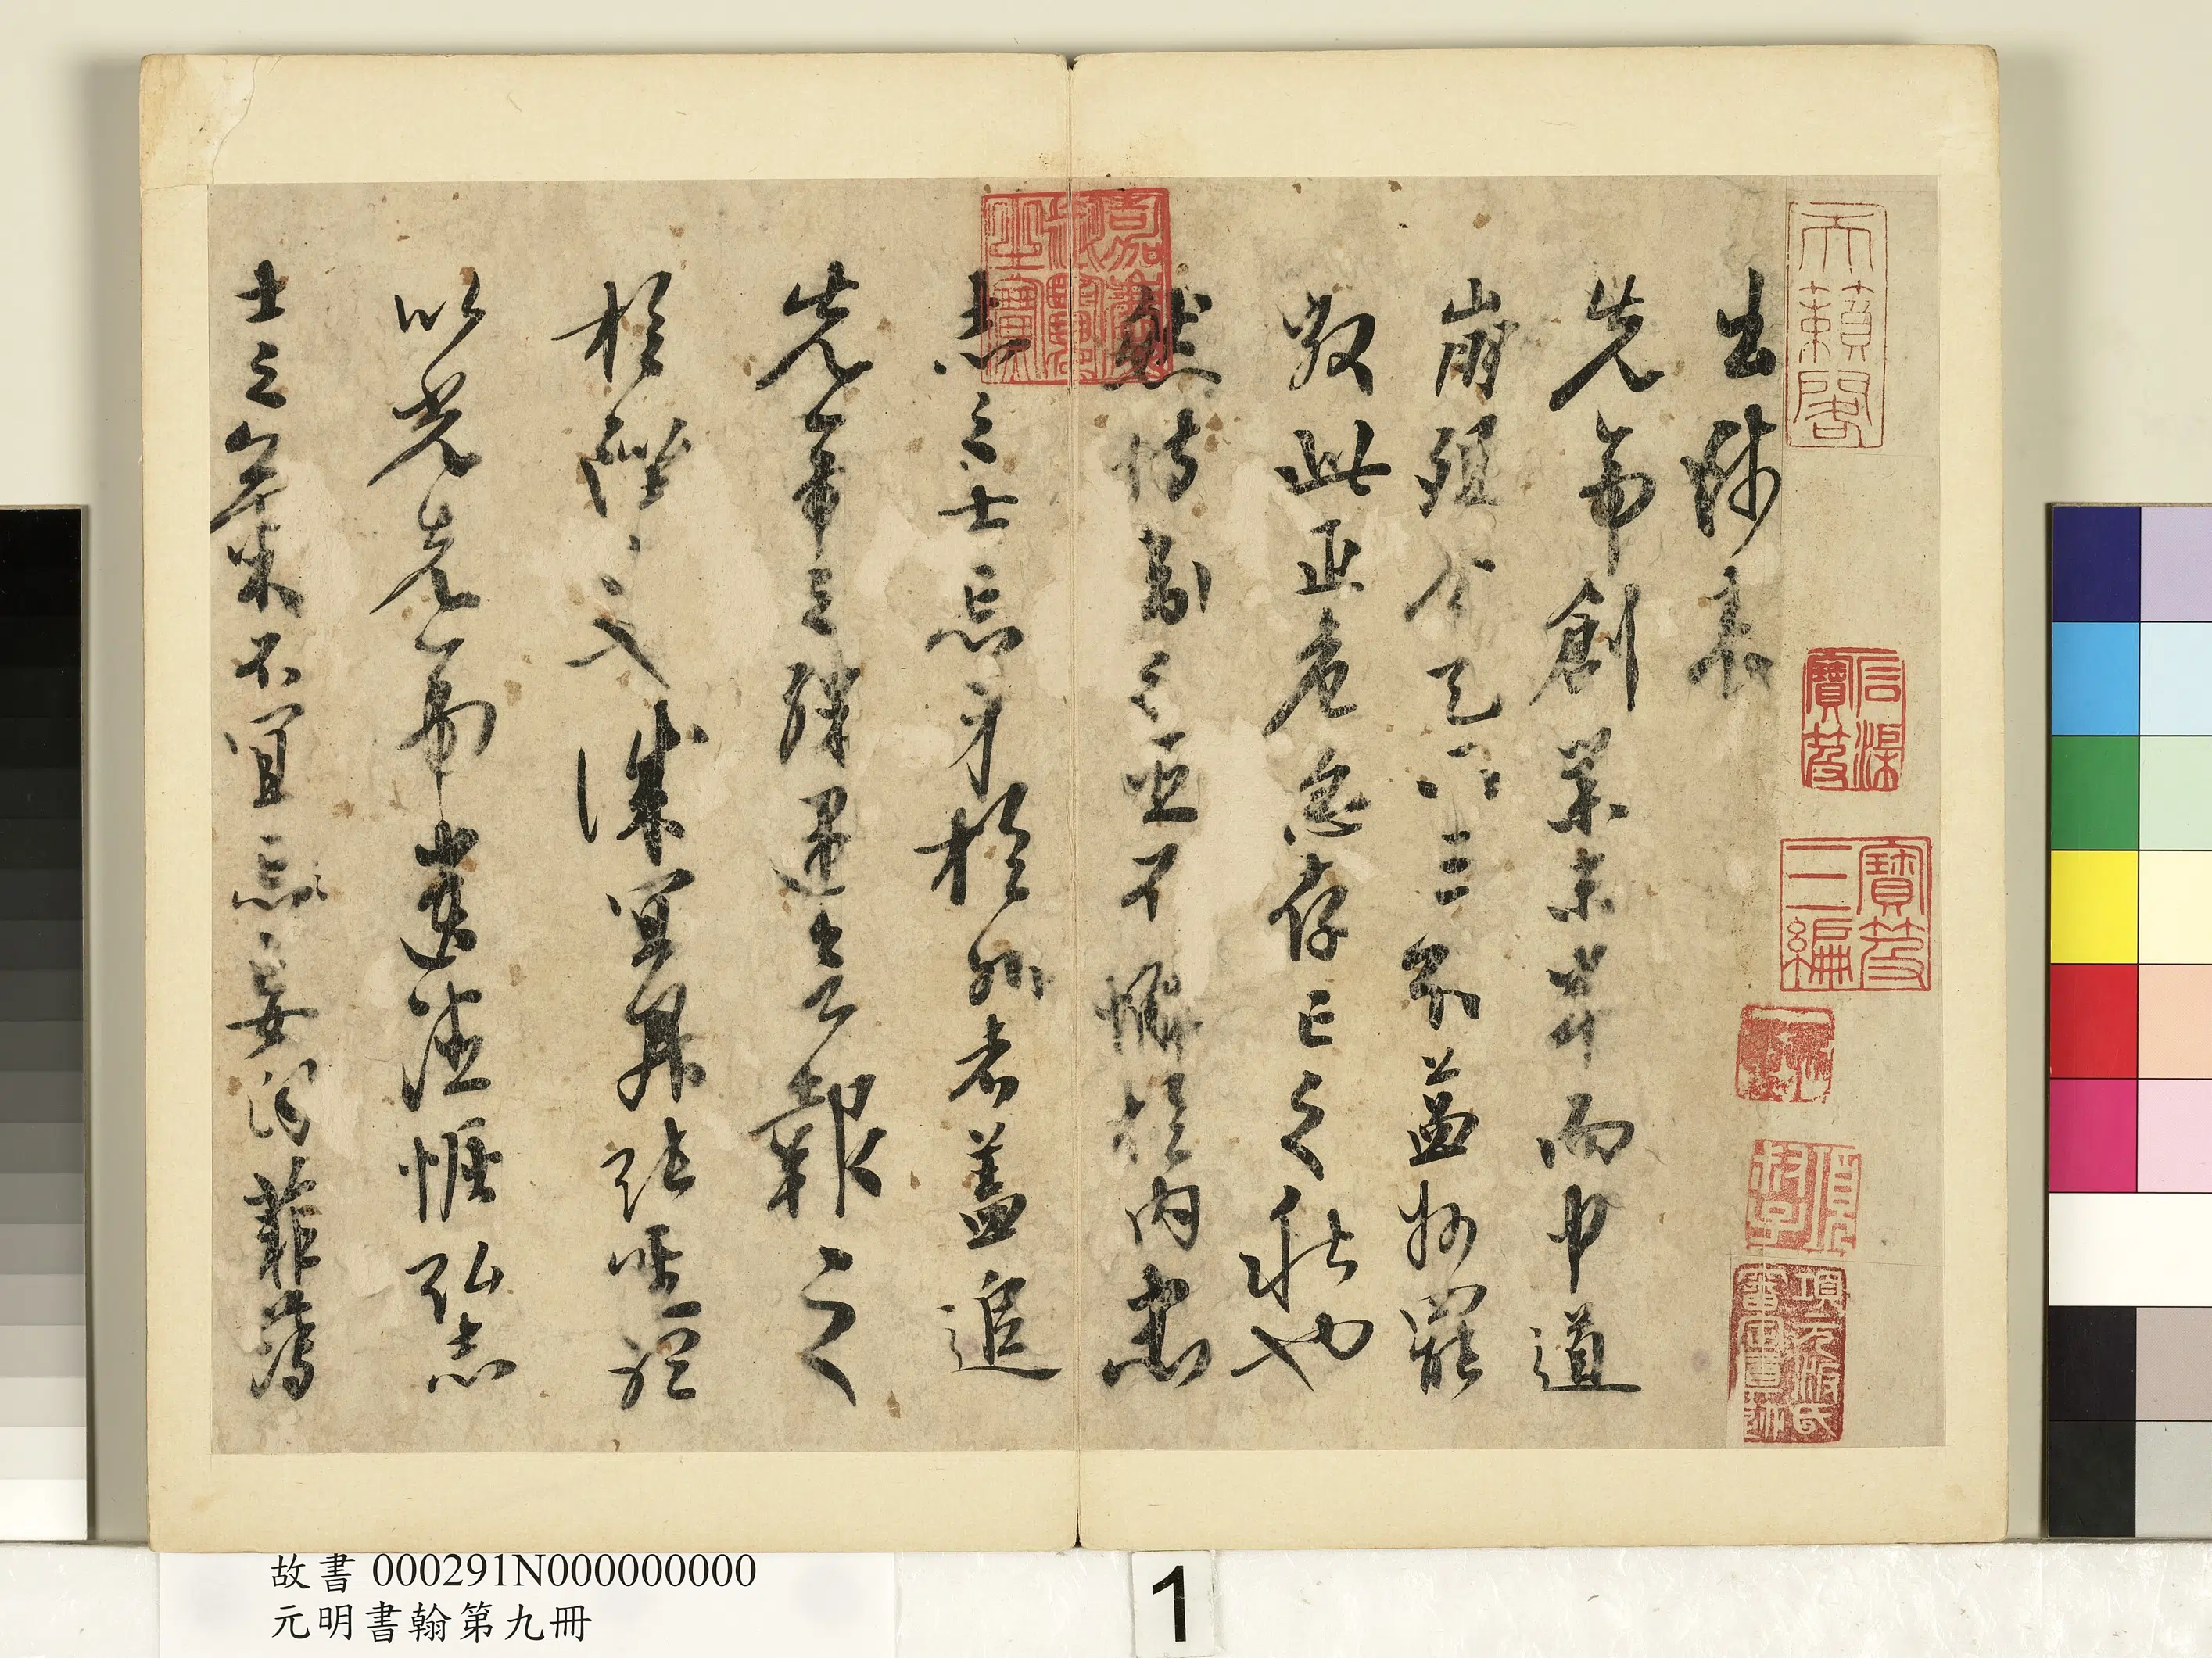 天籟閣
石渠寶笈
寶笈三編
項元汴氏審定真蹟
嘉慶御覽之寶
出師表
先帝創業未半而中道
崩殂今天下三分益州罷
敝此正危急存亡之秋也
然侍衛之臣不懈於內忠
志之士忘身於外者蓋追
先帝之殊遇欲報之
於陛下也誠宜開張聖聽
以光先帝遺德恢弘志
士之氣不宜忘妄自菲薄
故書 000291N000000000
元明書翰第九冊
1